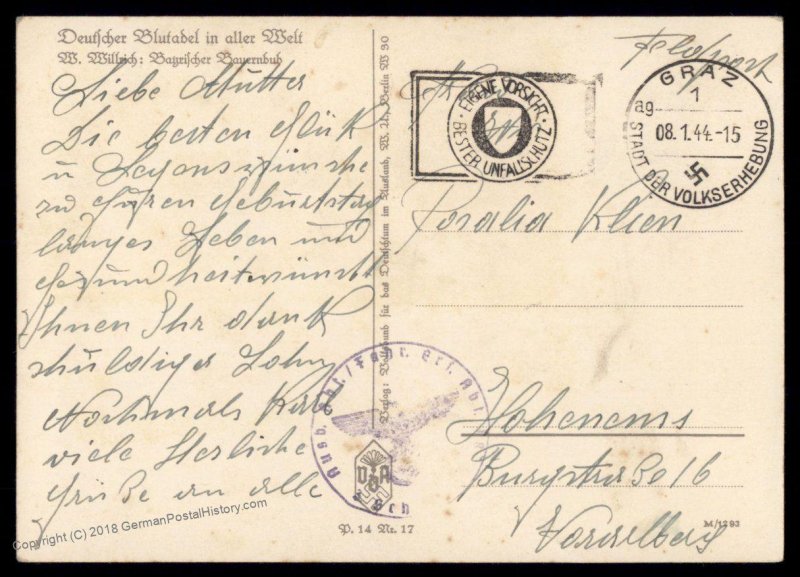 Deutscher Blutadel in aller Welt
W. Willrich: Bayrischer Bauernbub
Liebe Mutter
Die besten Glük
u Segenswünsche
zu Ihren Geburtstag
langes Leben und
Gesundheit wünscht
Ihnen Ihr dank
schuldiger Sohn
Nochmals
viele Herzliche
Grüße an alle
Verlag: Volksbund für das Deutschtum im Ausland, W. U., Berlin W 30
Feldpost
EIGENE VORSICHT · BESTER UNFALLSCHUTZ ·
GRAZ
1
ag
08.1.44.-15
STADT DER VOLKSERHEBUNG
Rosalia Klien
Hohenems
Burgstraße 16
Vorarlberg
Ausb. Abt./Fahr. Ers. Abt.
VDA
P. 14 Nr. 17
M/1293
Copyright (C) 2018 GermanPostalHistory.com